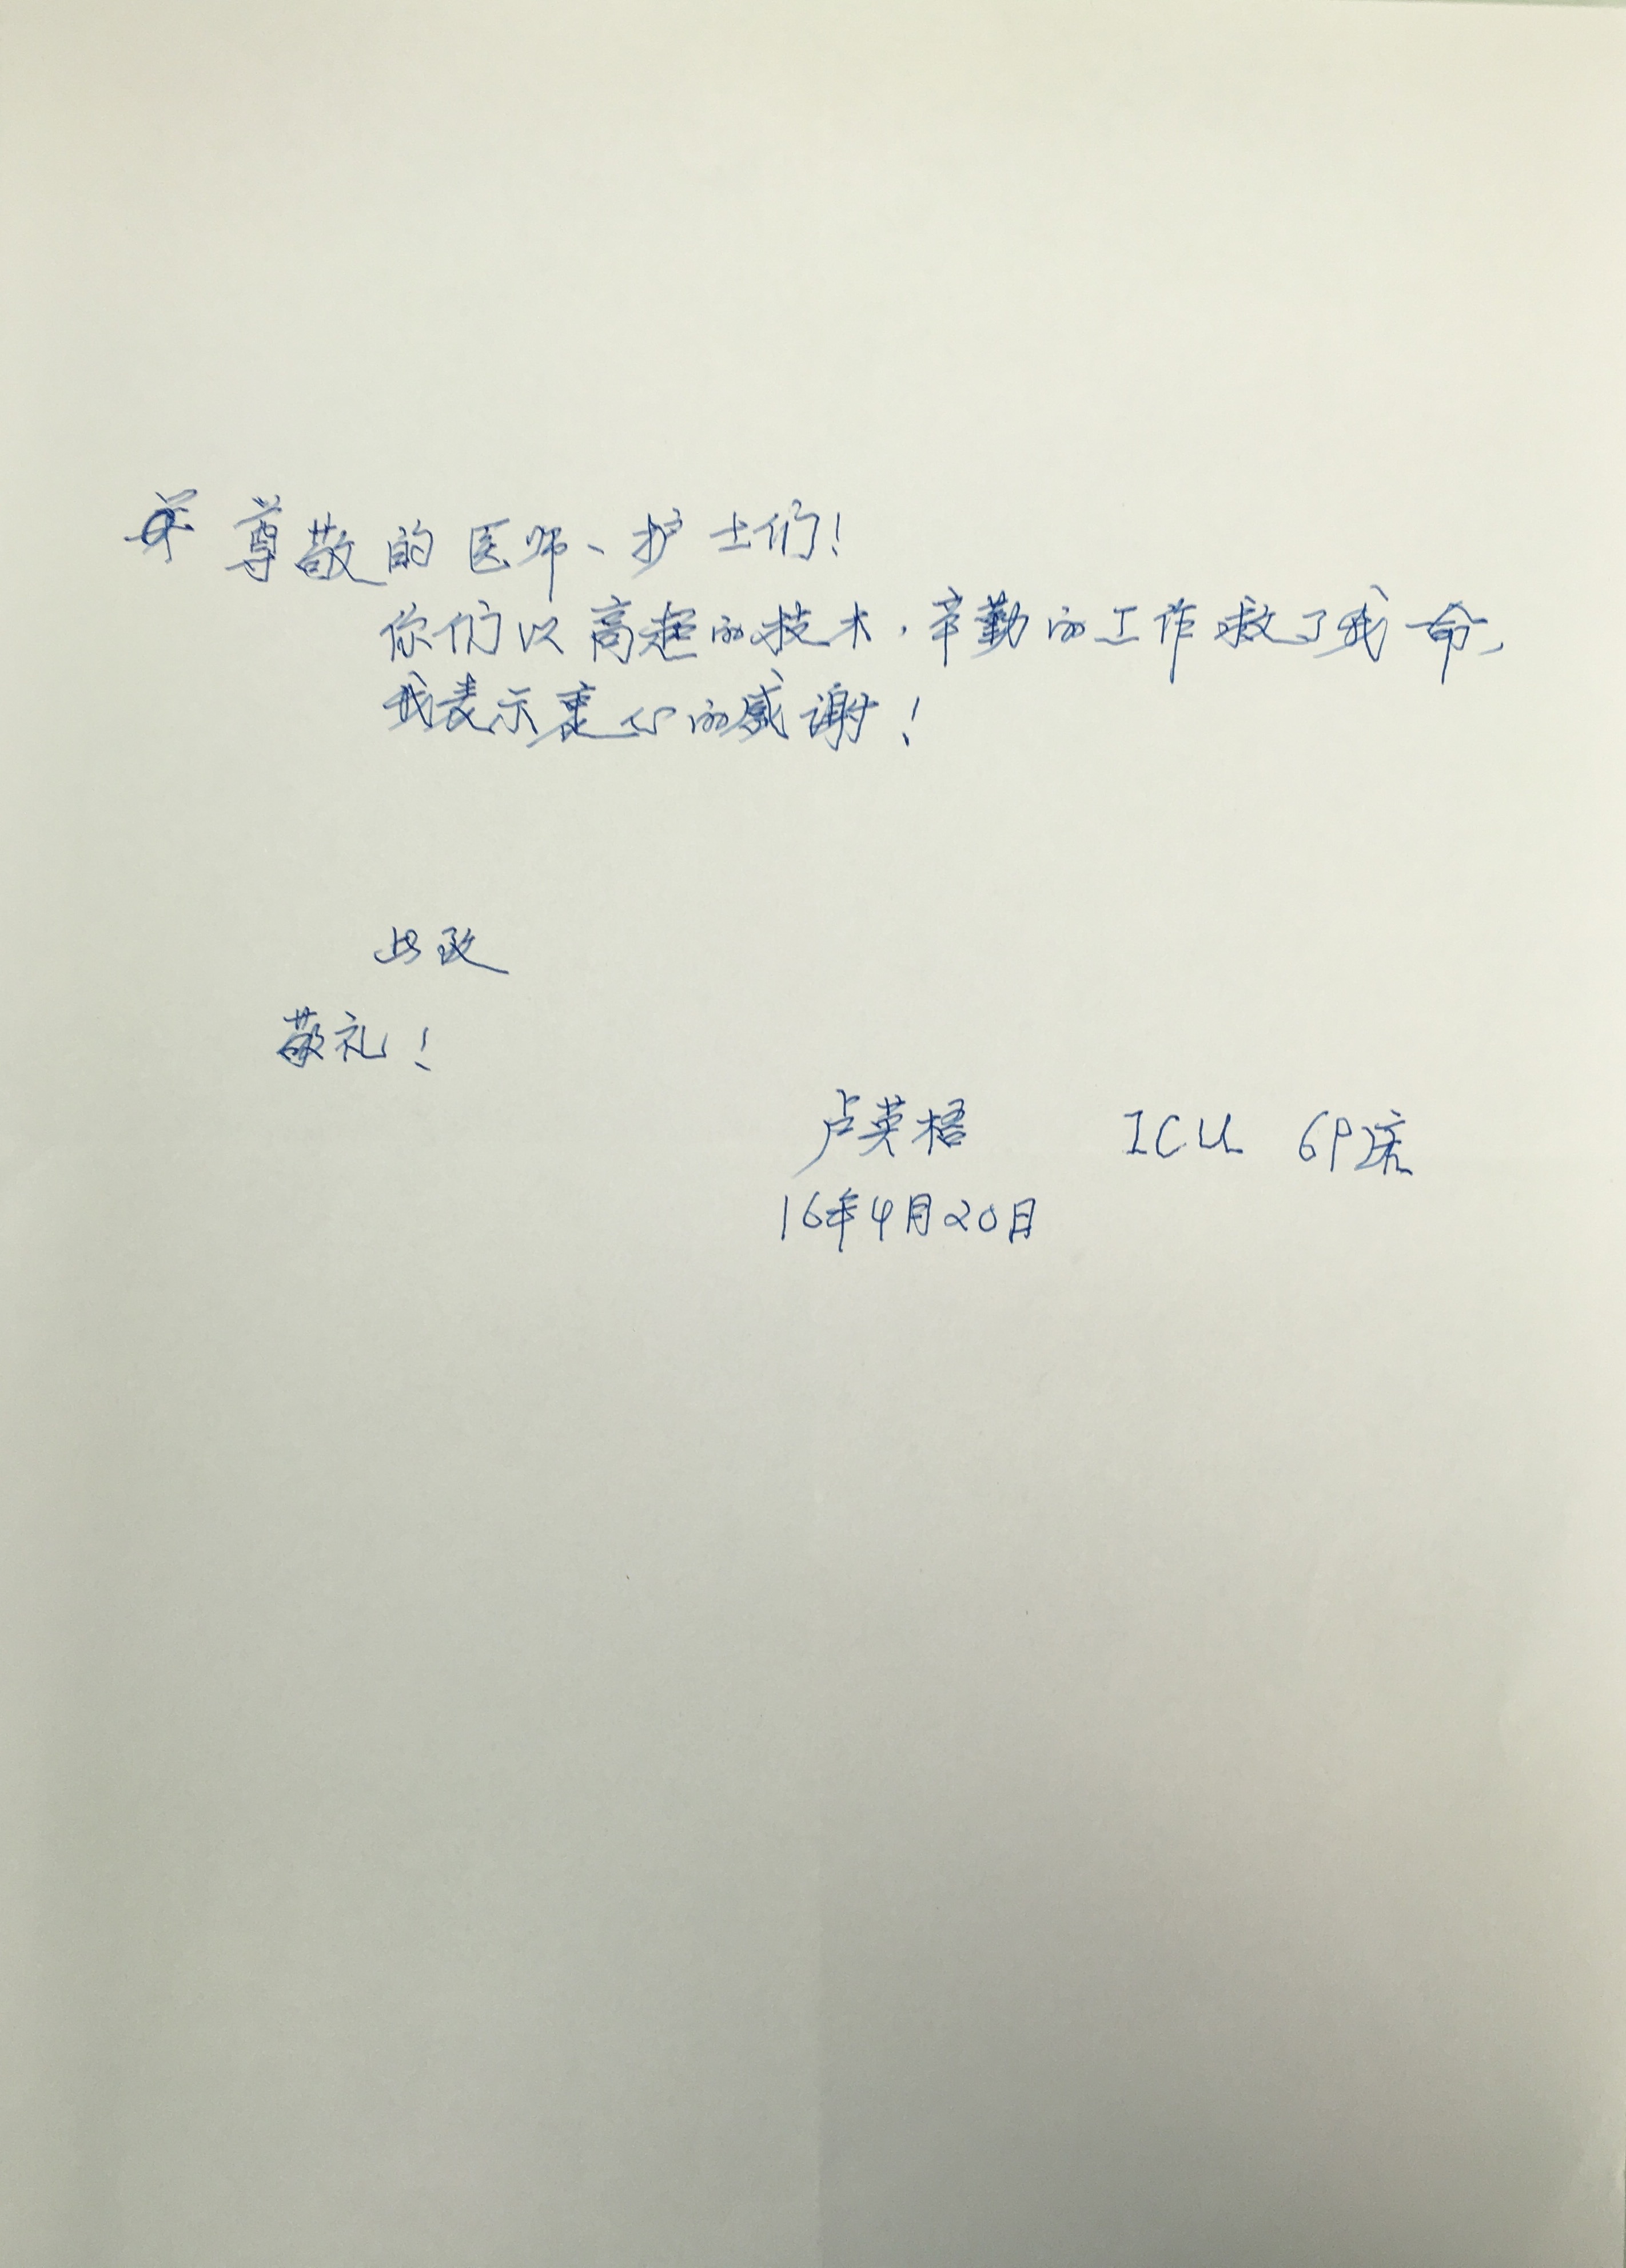 尊敬的医师、护士们!
你们以高超的技术,辛勤的工作救了我一命,
我表示衷心的感谢!
此致
敬礼!
卢英梧 ICU 6P床
16年4月20日